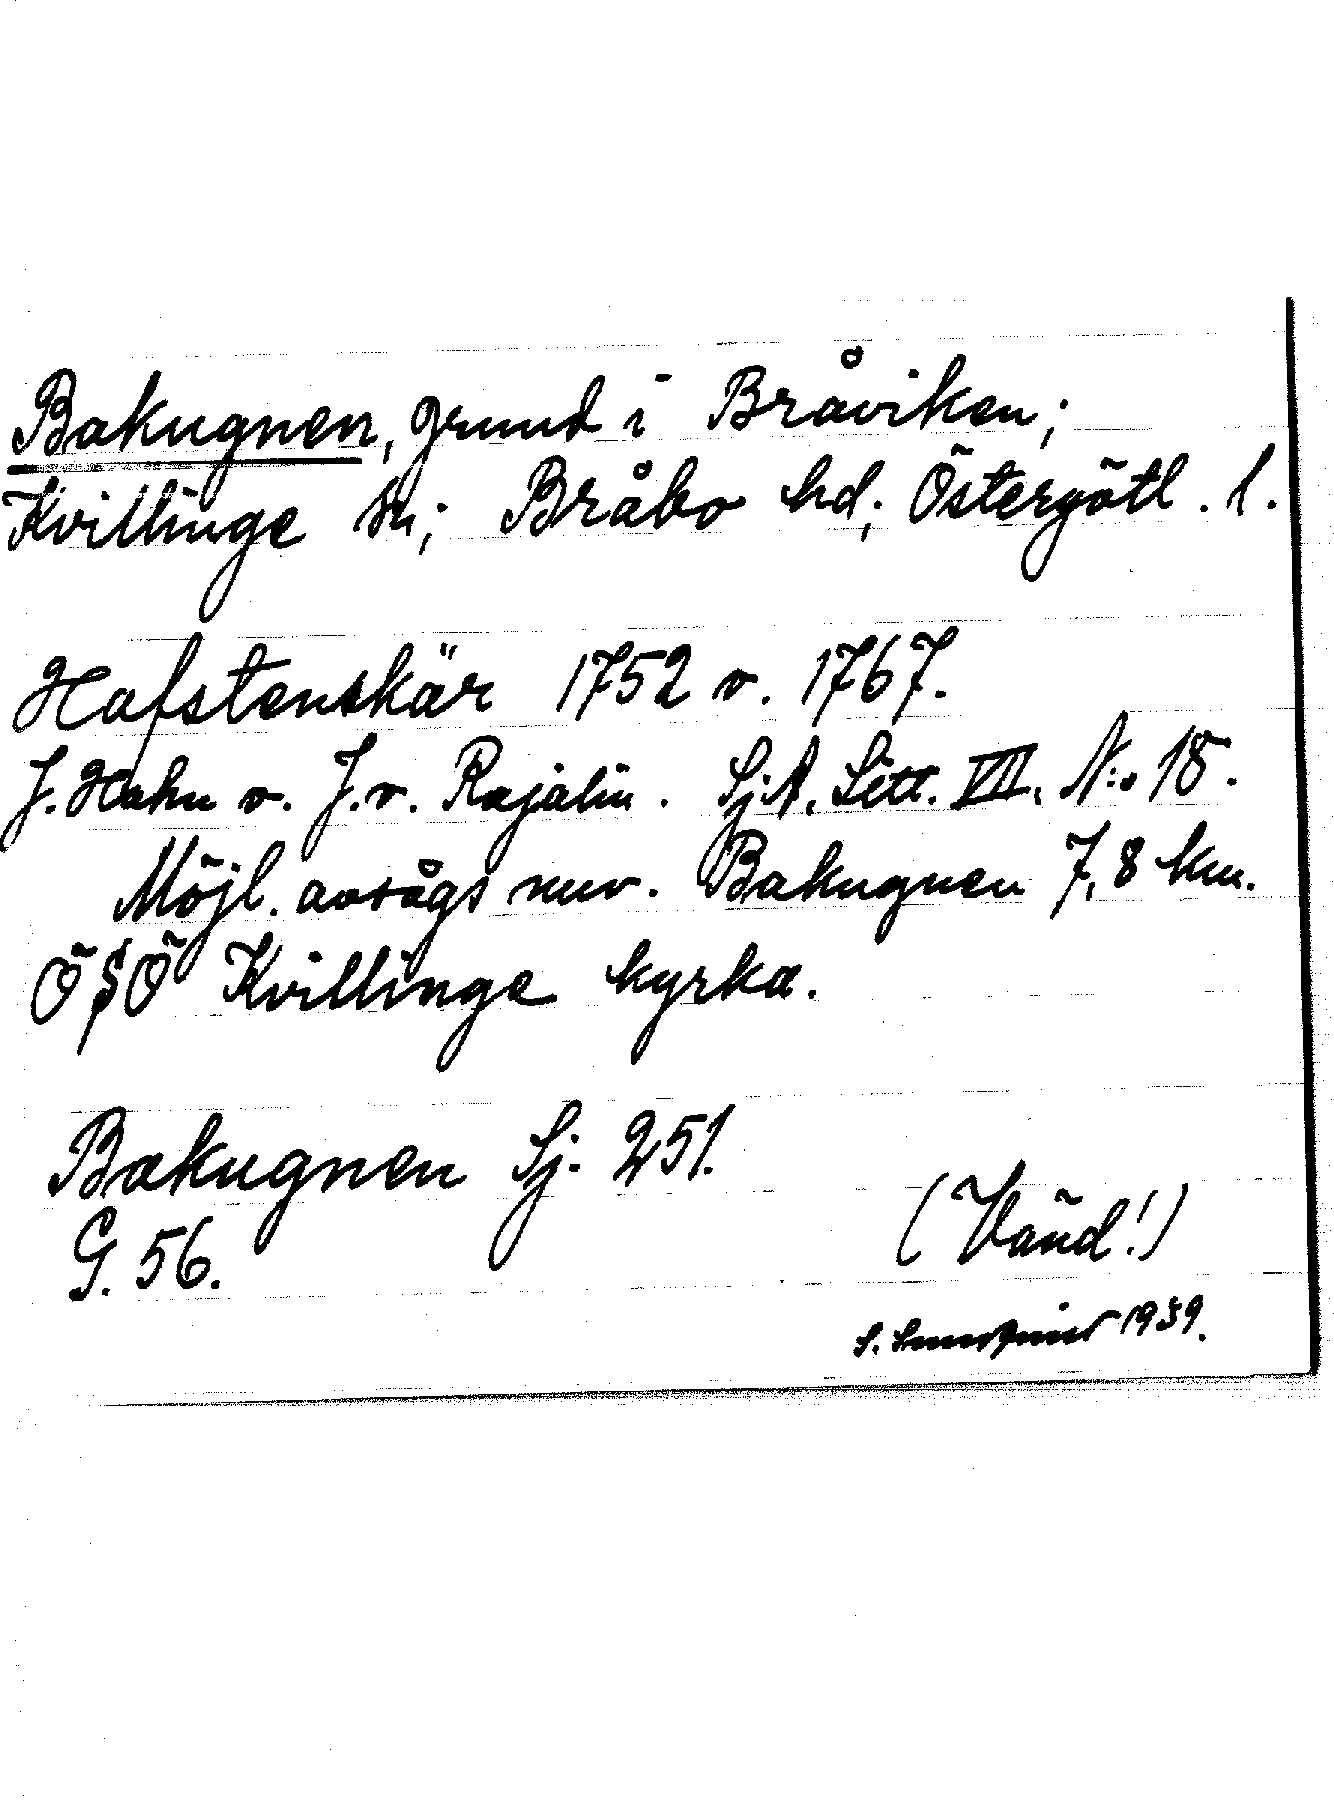 Bakugnen, grund i Bråviken;
Kvillinge sn; Bråbo hd; Östergötl. l.
Hafstenskär 1752 o. 1767.
J. Hahn o. J. v. Rajalin. Sj.A. Litt. VII. N:o 18.
Möjl. avsågs nuv. Bakugnen 7,8 km.
ÖSÖ Kvillinge kyrka.
Bakugnen Sj. 251.
G. 56.
(Vänd!)
1939.